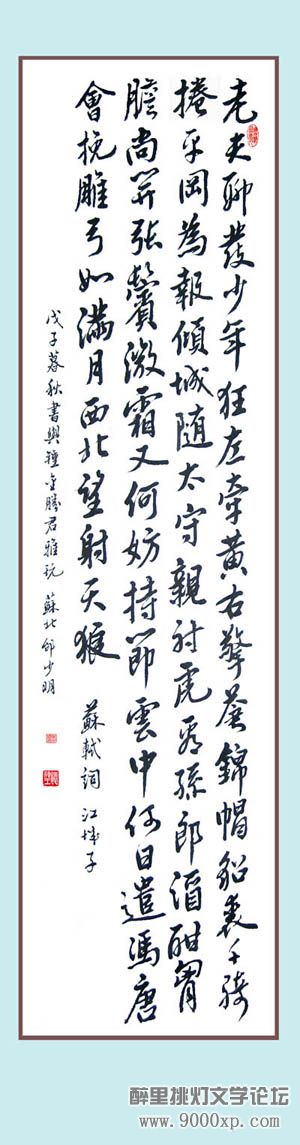 老夫聊發少年狂左牽黃右擎蒼錦帽貂裘千騎
捲平岡為報傾城隨太守親射虎看孫郎酒酣胸
膽尚開張鬢微霜又何妨持節雲中何日遣馮唐
會挽雕弓如滿月西北望射天狼
蘇軾詞 江城子
戊子暮秋書與鍾金勝君雅玩 蘇北邱少明
醉里挑灯文学论坛
www.9000xp.com